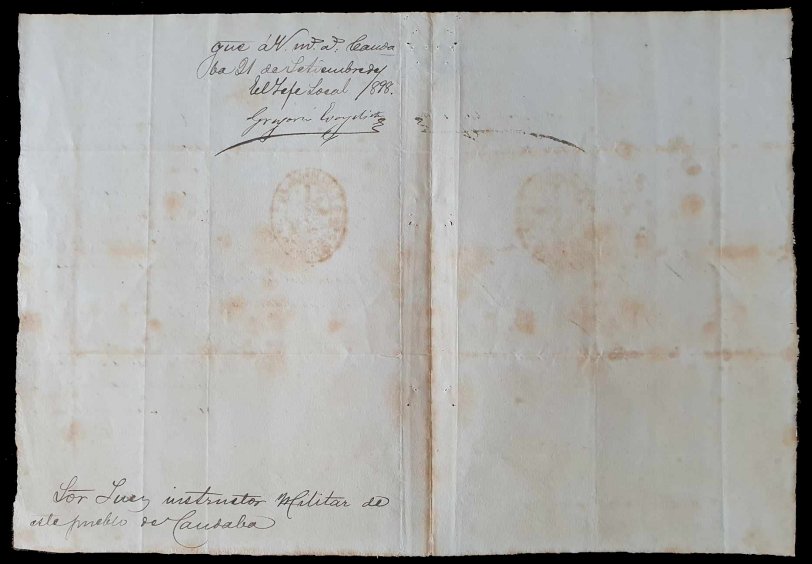 que á V. m.s a.s Canda
ba 21 de Setiembre de
El Jefe Local /898.
Gregorio Evangelista
Sor Juez instructor Militar de
este pueblo de Candaba